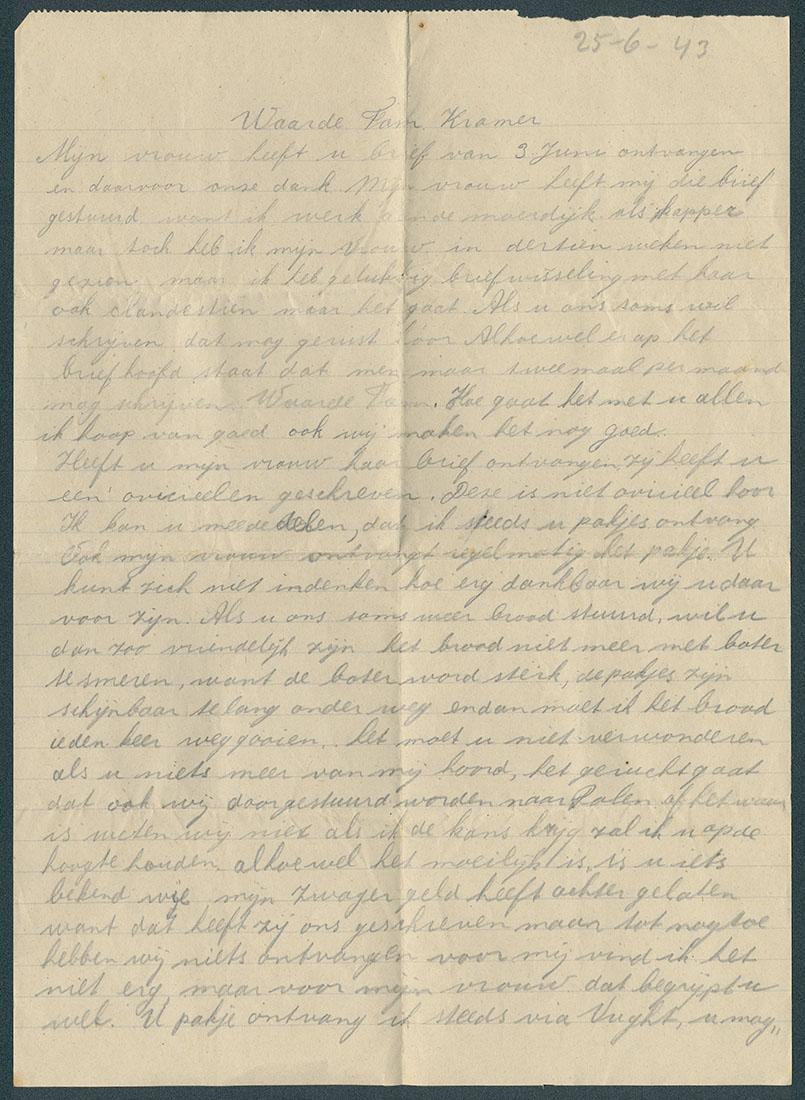 25-6-43
Waarde Fam. Kramer
Mijn vrouw heeft u brief van 3 Juni ontvangen
en daarvoor onze dank Mijn vrouw heeft mij die brief
gestuurd want ik werk aan de moerdijk als kapper
maar toch heb ik mijn vrouw in dertien weken niet
gezien, maar ik heb gelukkig briefwisseling met haar
ook clandestien maar het gaat Als u ons soms wil
schrijven dat mag gerust hoor Alhoewel er op het
briefhoofd staat dat men maar tweemaal per maand
mag schrijven. Waarde Fam. Hoe gaat het met u allen
ik hoop van goed ook wij maken het nog goed.
Heeft u mijn vrouw haar brief ontvangen zij heeft u
een ovicieelen geschreven. Deze is niet ovicieel hoor
Ik kan u meededelen, dat ik steeds u pakjes ontvang
Ook mijn vrouw ontvangt regelmatig het pakje. U
kunt zich niet indenken hoe erg dankbaar wij u daar
voor zijn. Als u ons soms weer brood stuurd, wil u
dan zoo vriendelijk zijn het brood niet meer met boter
te smeren, want de boter word sterk, de pakjes zijn
schijnbaar te lang onder weg en dan moet ik het brood
ieden keer weg gooien. het moet u niet verwonderen
als u niets meer van mij hoord, het gerucht gaat
dat ook wij doorgestuurd worden naar Polen of het waar
is weten wij niet als ik de kans krijg zal ik u op de
hoogte houden. alhoewel het moeilijk is, is u iets
bekend wie mijn zwager geld heeft achter gelaten
want dat heeft zij ons geschreven maar tot nog toe
hebben wij niets ontvangen voor mij vind ik het
niet erg, maar voor mijn vrouw dat begrijpt u
wel. U pakje ontvang ik steeds via Vught, u mag,,